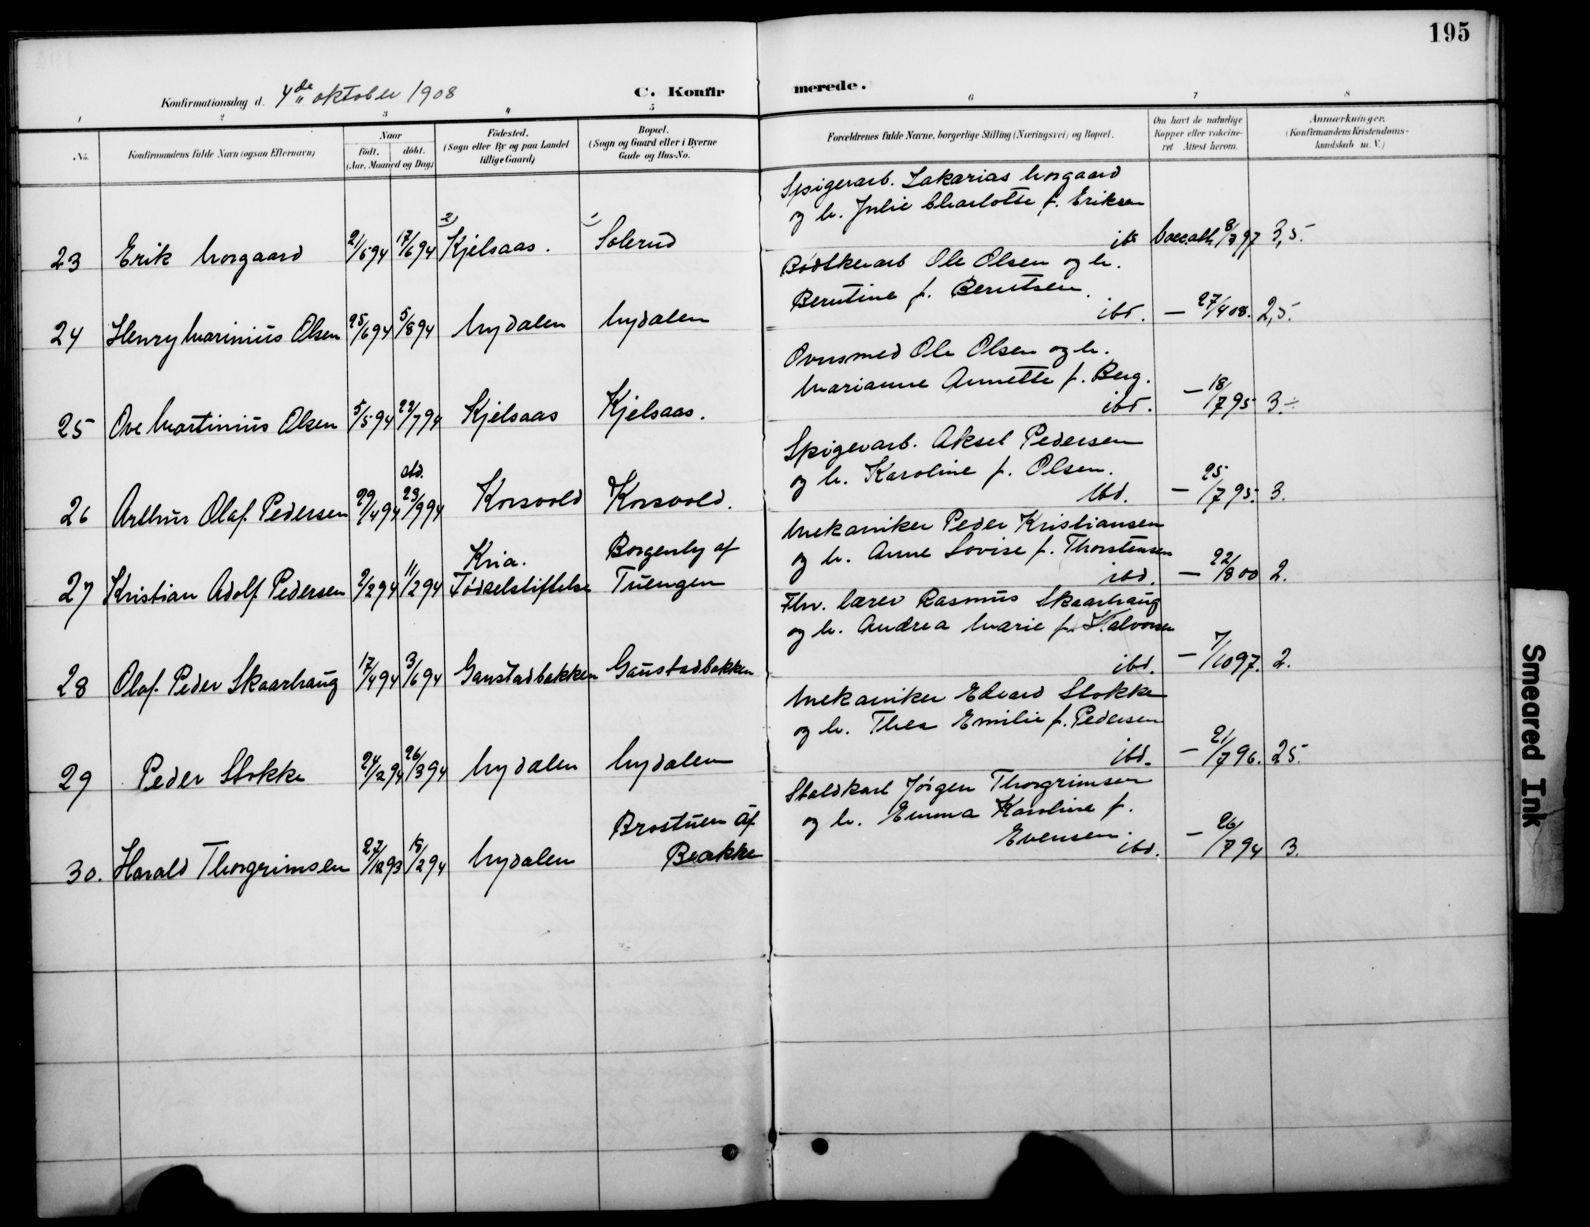 195
Konfirmationsdag d. 4de oktober 1908
C. Konfirmerede.
1 2 3 4 5 6 7 8
No.
Konfirmandens fulde Navn (ogsaa Efternavn)
Naar
født. døbt.
(Aar, Maaned og Dag)
Fødested.
(Sogn eller By og paa Landet
tillige Gaard)
Bopæl.
(Sogn og Gaard eller i Byerne
Gade og Hus-No.
Forældrenes fulde Navne, borgerlige Stilling (Næringsvei) og Bopæl.
Om havt de naturlige
Kopper eller vakcine-
ret Attest herom.
Anmærkninger.
(Konfirmandens Kristendoms-
kundskab m. V.)
23 Erik Morgaard 2/5 94 17/6 94 Kjelsaas. Solerud
Spigerarb. Zakarias Morgaard
og h. Julie Charlotte f. Eriksen
ib. 3,5.
24 Henry Marinius Olsen 25/6 94 5/8 94 Nydalen Nydalen
Bødtkerarb Ole Olsen og h.
Berntine f. Berntsen.
ibd. — 27/4 08. 2,5.
25 Ove Martinius Olsen 5/5 94 22/7 94 Kjelsaas Kjelsaas.
Ovnsmed Ole Olsen og h.
Marianne Annette f. Berg.
ibd. — 18/7 95 3.
26 Arthur Olaf Pedersen 29/4 94 23/9 94 Korsvold Korsvold.
Spigerarb. Aksel Pedersen
og h. Karoline f. Olsen.
Ibd. — 25/7 95. 3.
27 Kristian Adolf Pedersen 2/2 94 11/2 94 Kria. Fødselstiftelse Borgenby af Tuengen
Mekaniker Peder Kristiansen
og h. Anne Lovise f. Thorstensen
ibd. — 22/8 00 2.
28 Olaf Peder Skaarhaug 17/4 94 3/6 94 Gaustadbakken Gaustadbakken
Fhv. lærer Rasmus Skaarhaug
og h. Andrea Marie f. Halvorsen
ibd. — 7/10 97. 2.
29 Peder Stokke 24/2 94 26/3 94 Nydalen Nydalen
Mekaniker Edvard Stokke
og h. Thea Emilie f. Pedersen
ibd. — 21/7 96. 25.
30. Harald Thorgrimsen 27/12 93 18/2 94 Nydalen Brostuen af Brække
Staldkarl Jørgen Thorgrimsen
og h. Emma Karoline f.
Evensen. ibd. — 26/7 94 3.
Smeared Ink